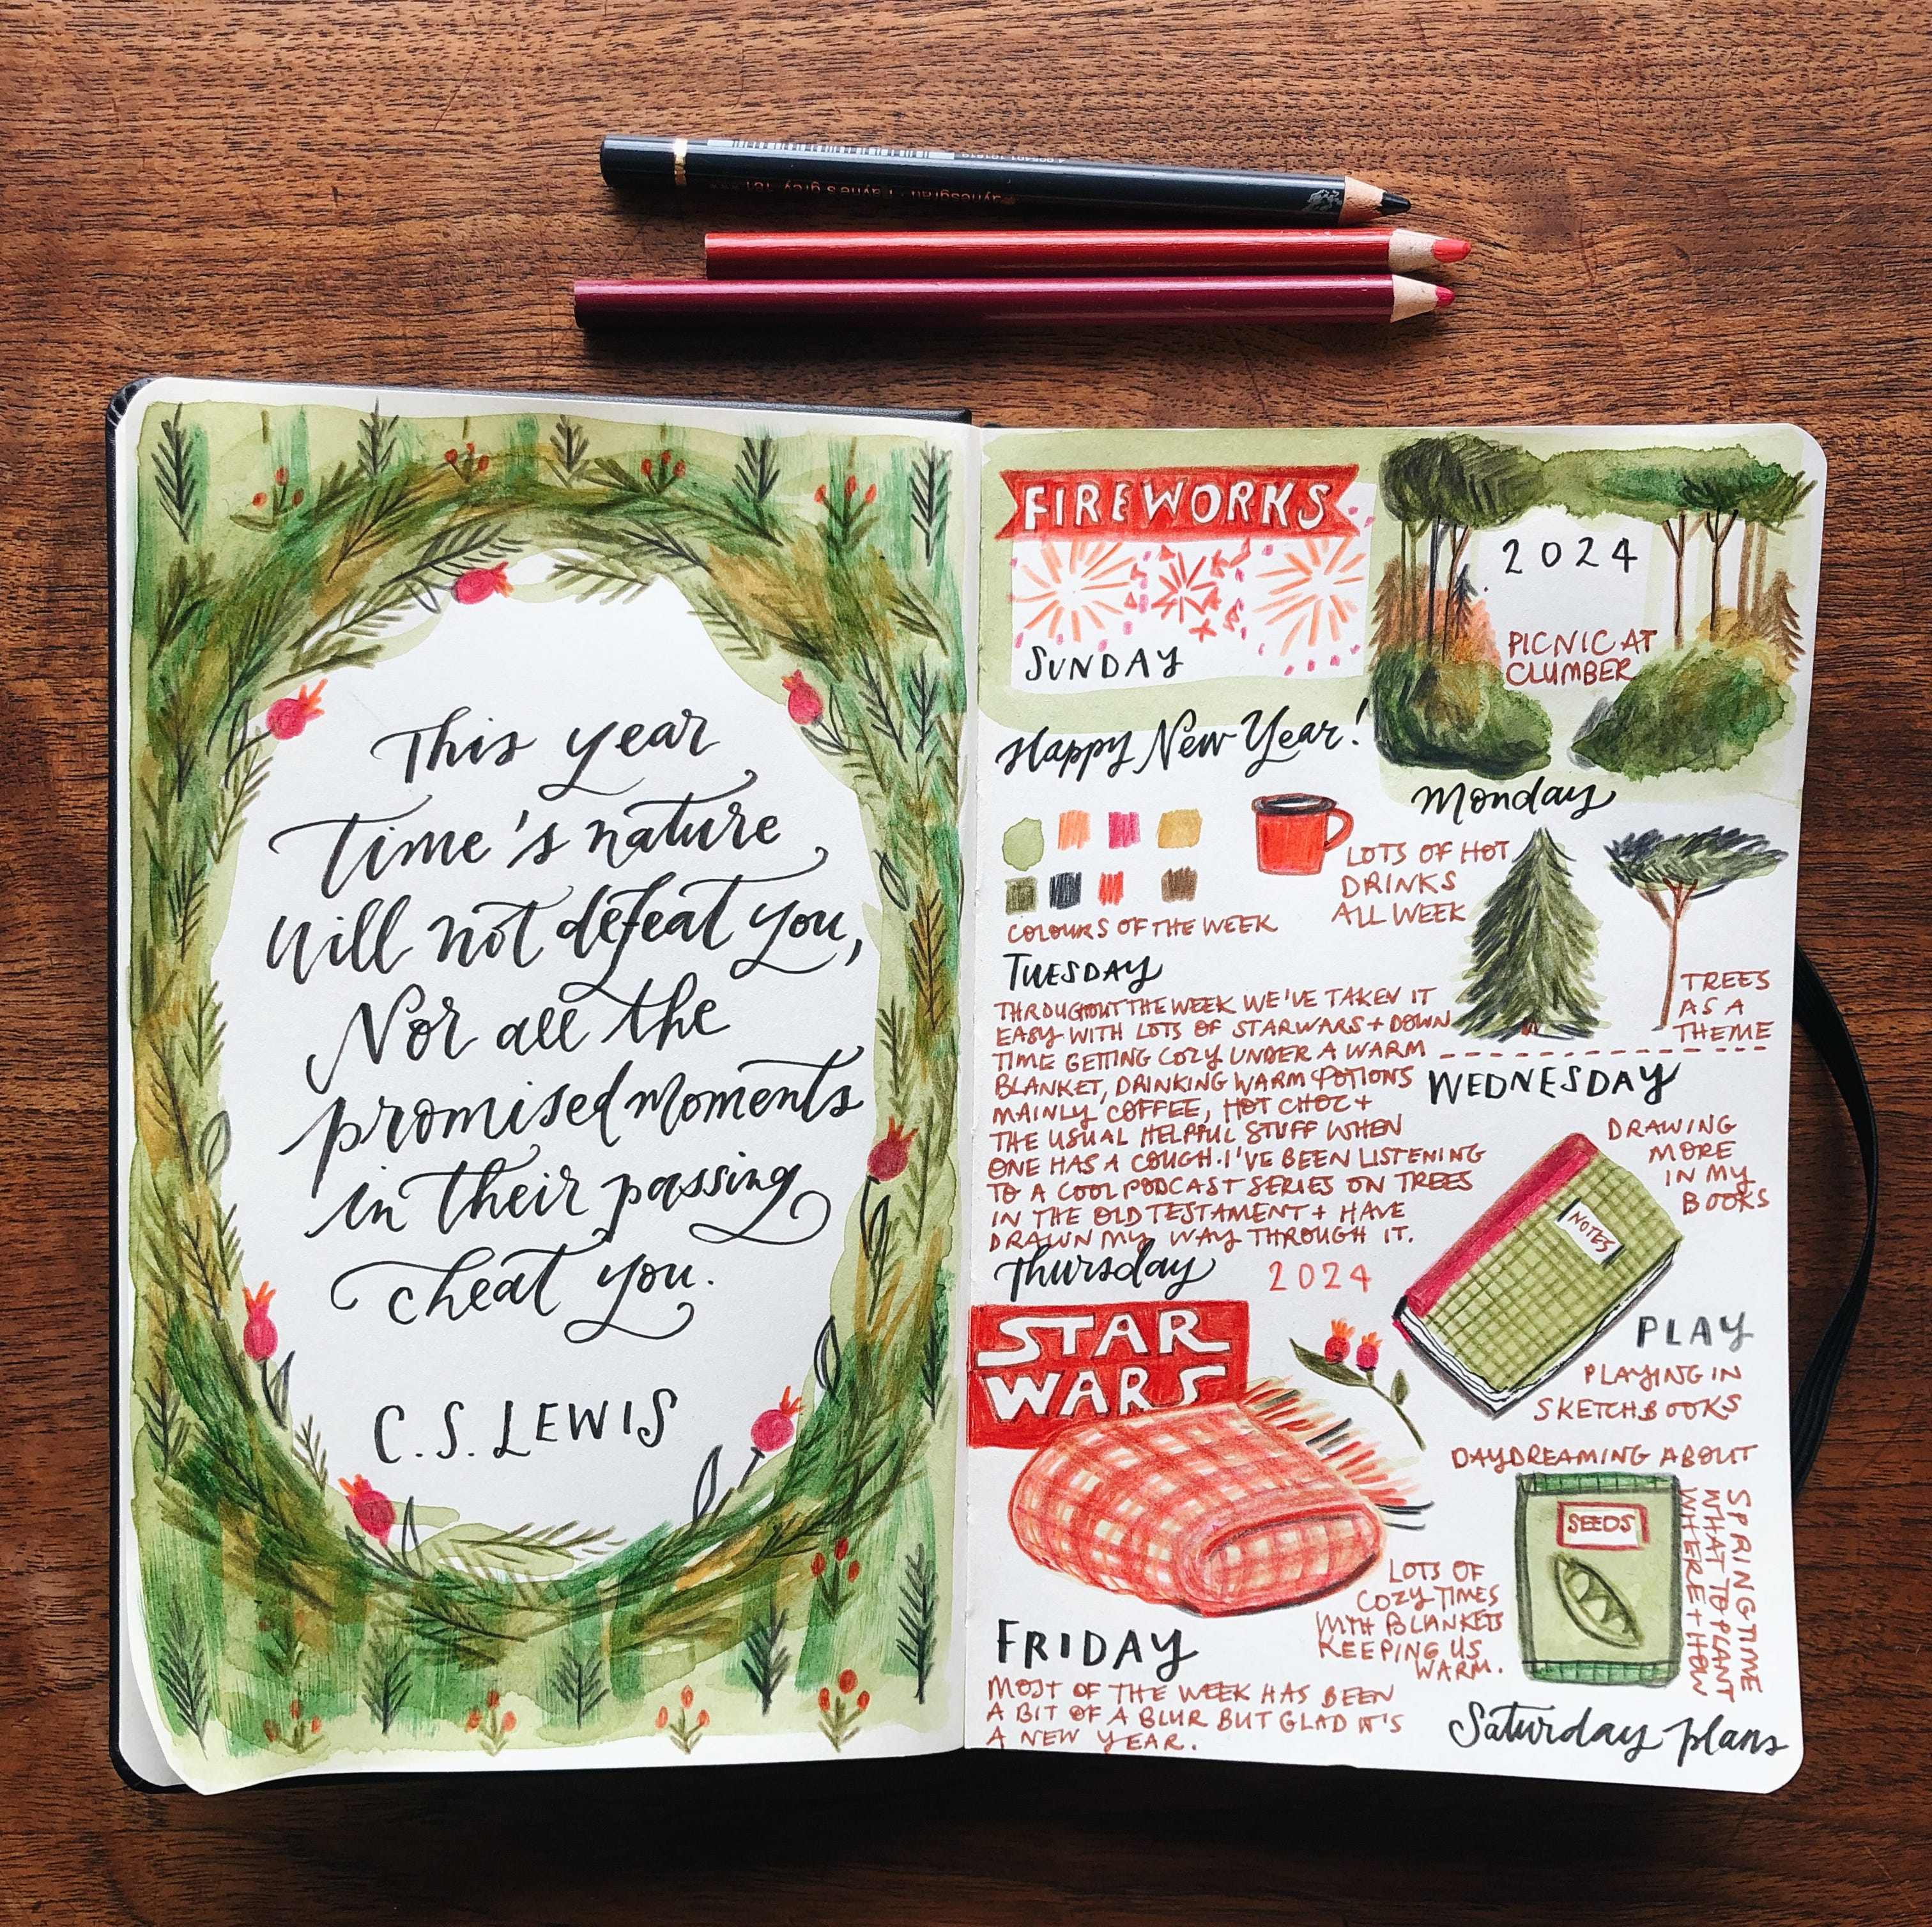 Paynesgrau · Payne's grey 181
This year
Time's nature
Will not defeat you,
Nor all the
promised moments
in their passing
cheat you.
C.S. LEWIS
FIREWORKS
SUNDAY
2024
PICNIC AT
CLUMBER
Happy New Year!
Monday
COLOURS OF THE WEEK
LOTS OF HOT
DRINKS
ALL WEEK
TREES
AS A
THEME
TUESDAY
THROUGHOUT THE WEEK WE'VE TAKEN IT
EASY WITH LOTS OF STARWARS + DOWN
TIME GETTING COZY UNDER A WARM
BLANKET, DRINKING WARM POTIONS
MAINLY COFFEE, HOT CHOC +
THE USUAL HELPFUL STUFF WHEN
ONE HAS A COUGH. I'VE BEEN LISTENING
TO A COOL PODCAST SERIES ON TREES
IN THE OLD TESTAMENT + HAVE
DRAWN MY WAY THROUGH IT.
WEDNESDAY
DRAWING
MORE
IN MY
BOOKS
NOTES
PLAY
PLAYING IN
SKETCHBOOKS
Thursday
2024
STAR
WARS
LOTS OF
COZY TIMES
WITH BLANKETS
KEEPING US
WARM.
DAYDREAMING ABOUT
SPRINGTIME
WHAT TO PLANT
WHERE + HOW
SEEDS
FRIDAY
MOST OF THE WEEK HAS BEEN
A BIT OF A BLUR BUT GLAD IT'S
A NEW YEAR.
Saturday plans